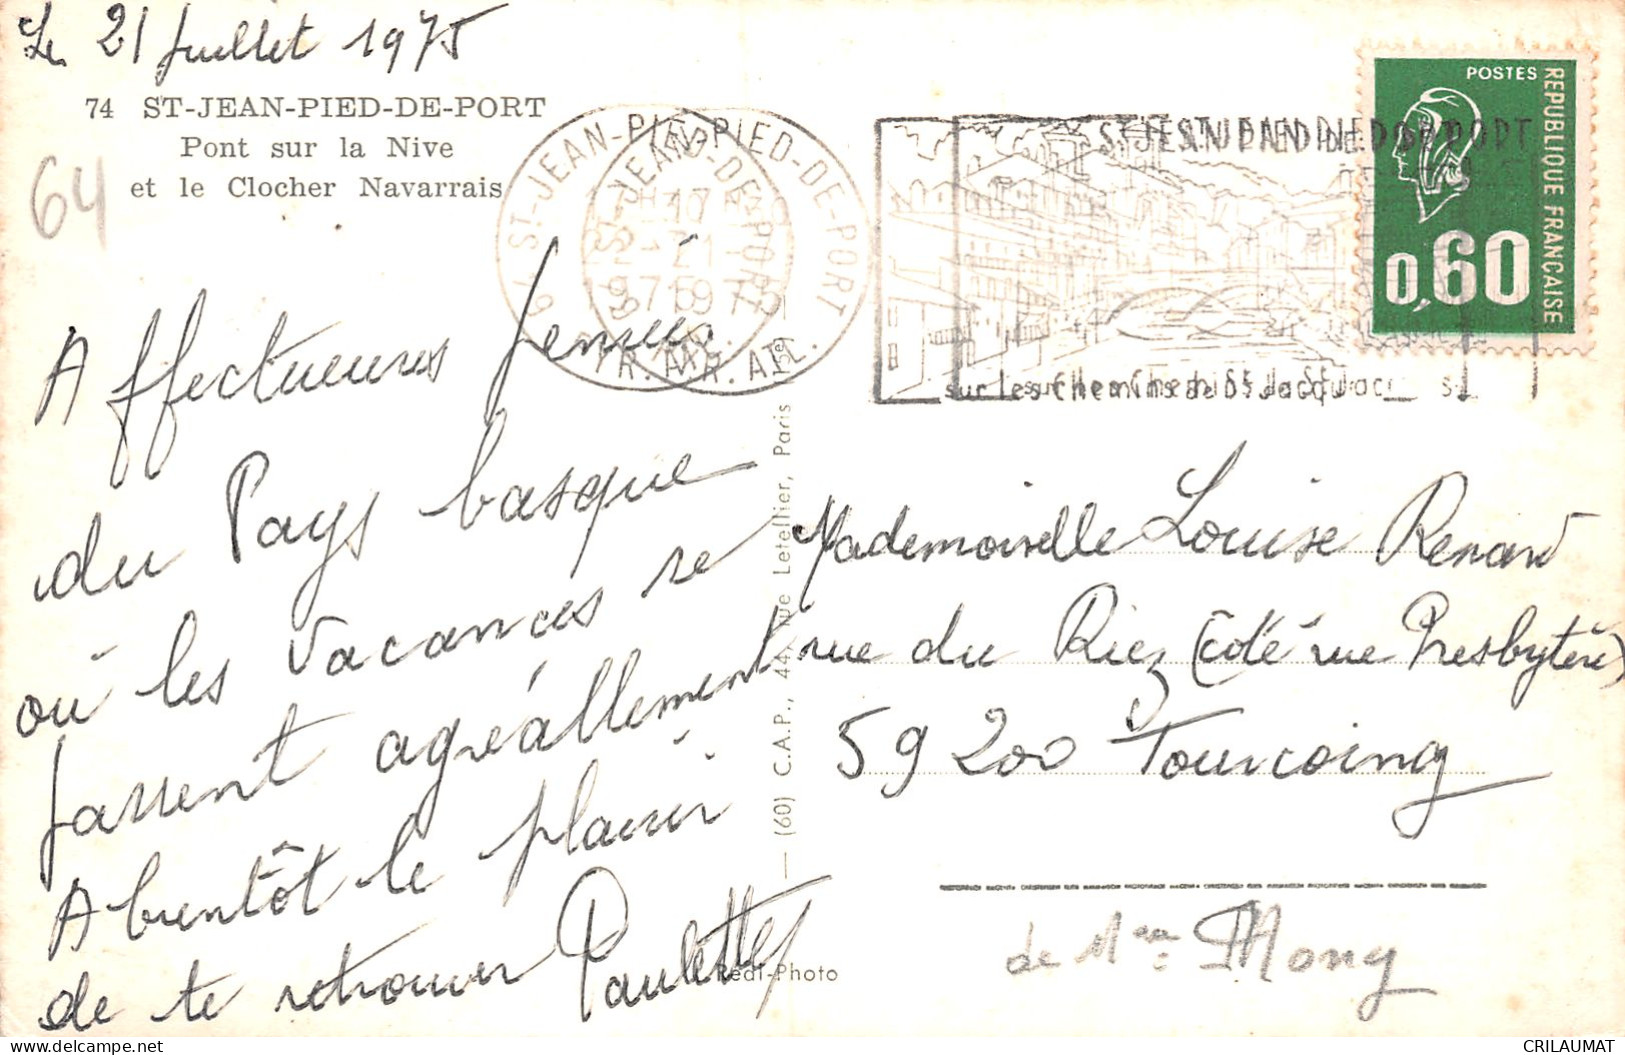 Le 21 Juillet 1975
74 ST-JEAN-PIED-DE-PORT
Pont sur la Nive
et le Clocher Navarrais
64
Affectueuses pensées
du Pays basque
où les vacances se
passent agréablement
A bientôt le plaisir
de te retrouver Paulette
64 ST-JEAN-PIED-DE-PORT
PYR. ATL.
ST JEAN PIED DE PORT
sur les Chemins de St Jacques
POSTES
REPUBLIQUE FRANCAISE
0,60
(60) C.A.P., 44, rue Letellier, Paris 15e
Mademoiselle Louise Renard
rue du Riez (côté rue Presbytère)
59200 Tourcoing
de Mme Mony
Redi-Photo
CRILAUMAT